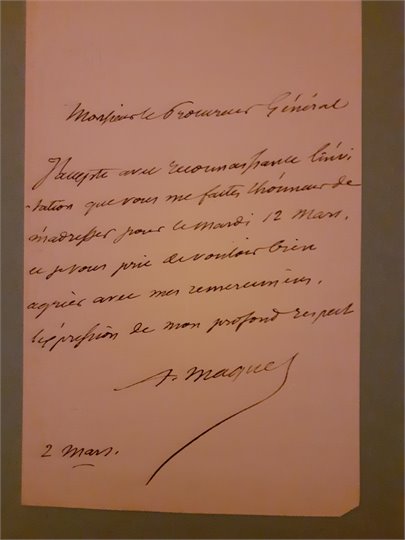 Monsieur le Procureur Général
J'accepte avec reconnaissance l'invi
tation que vous me faites l'honneur de
m'adresser pour le mardi 12 Mars.
et je vous prie de vouloir bien
agréer avec mes remerciemens,
l'expression de mon profond respect
A. Maquet
2 Mars.